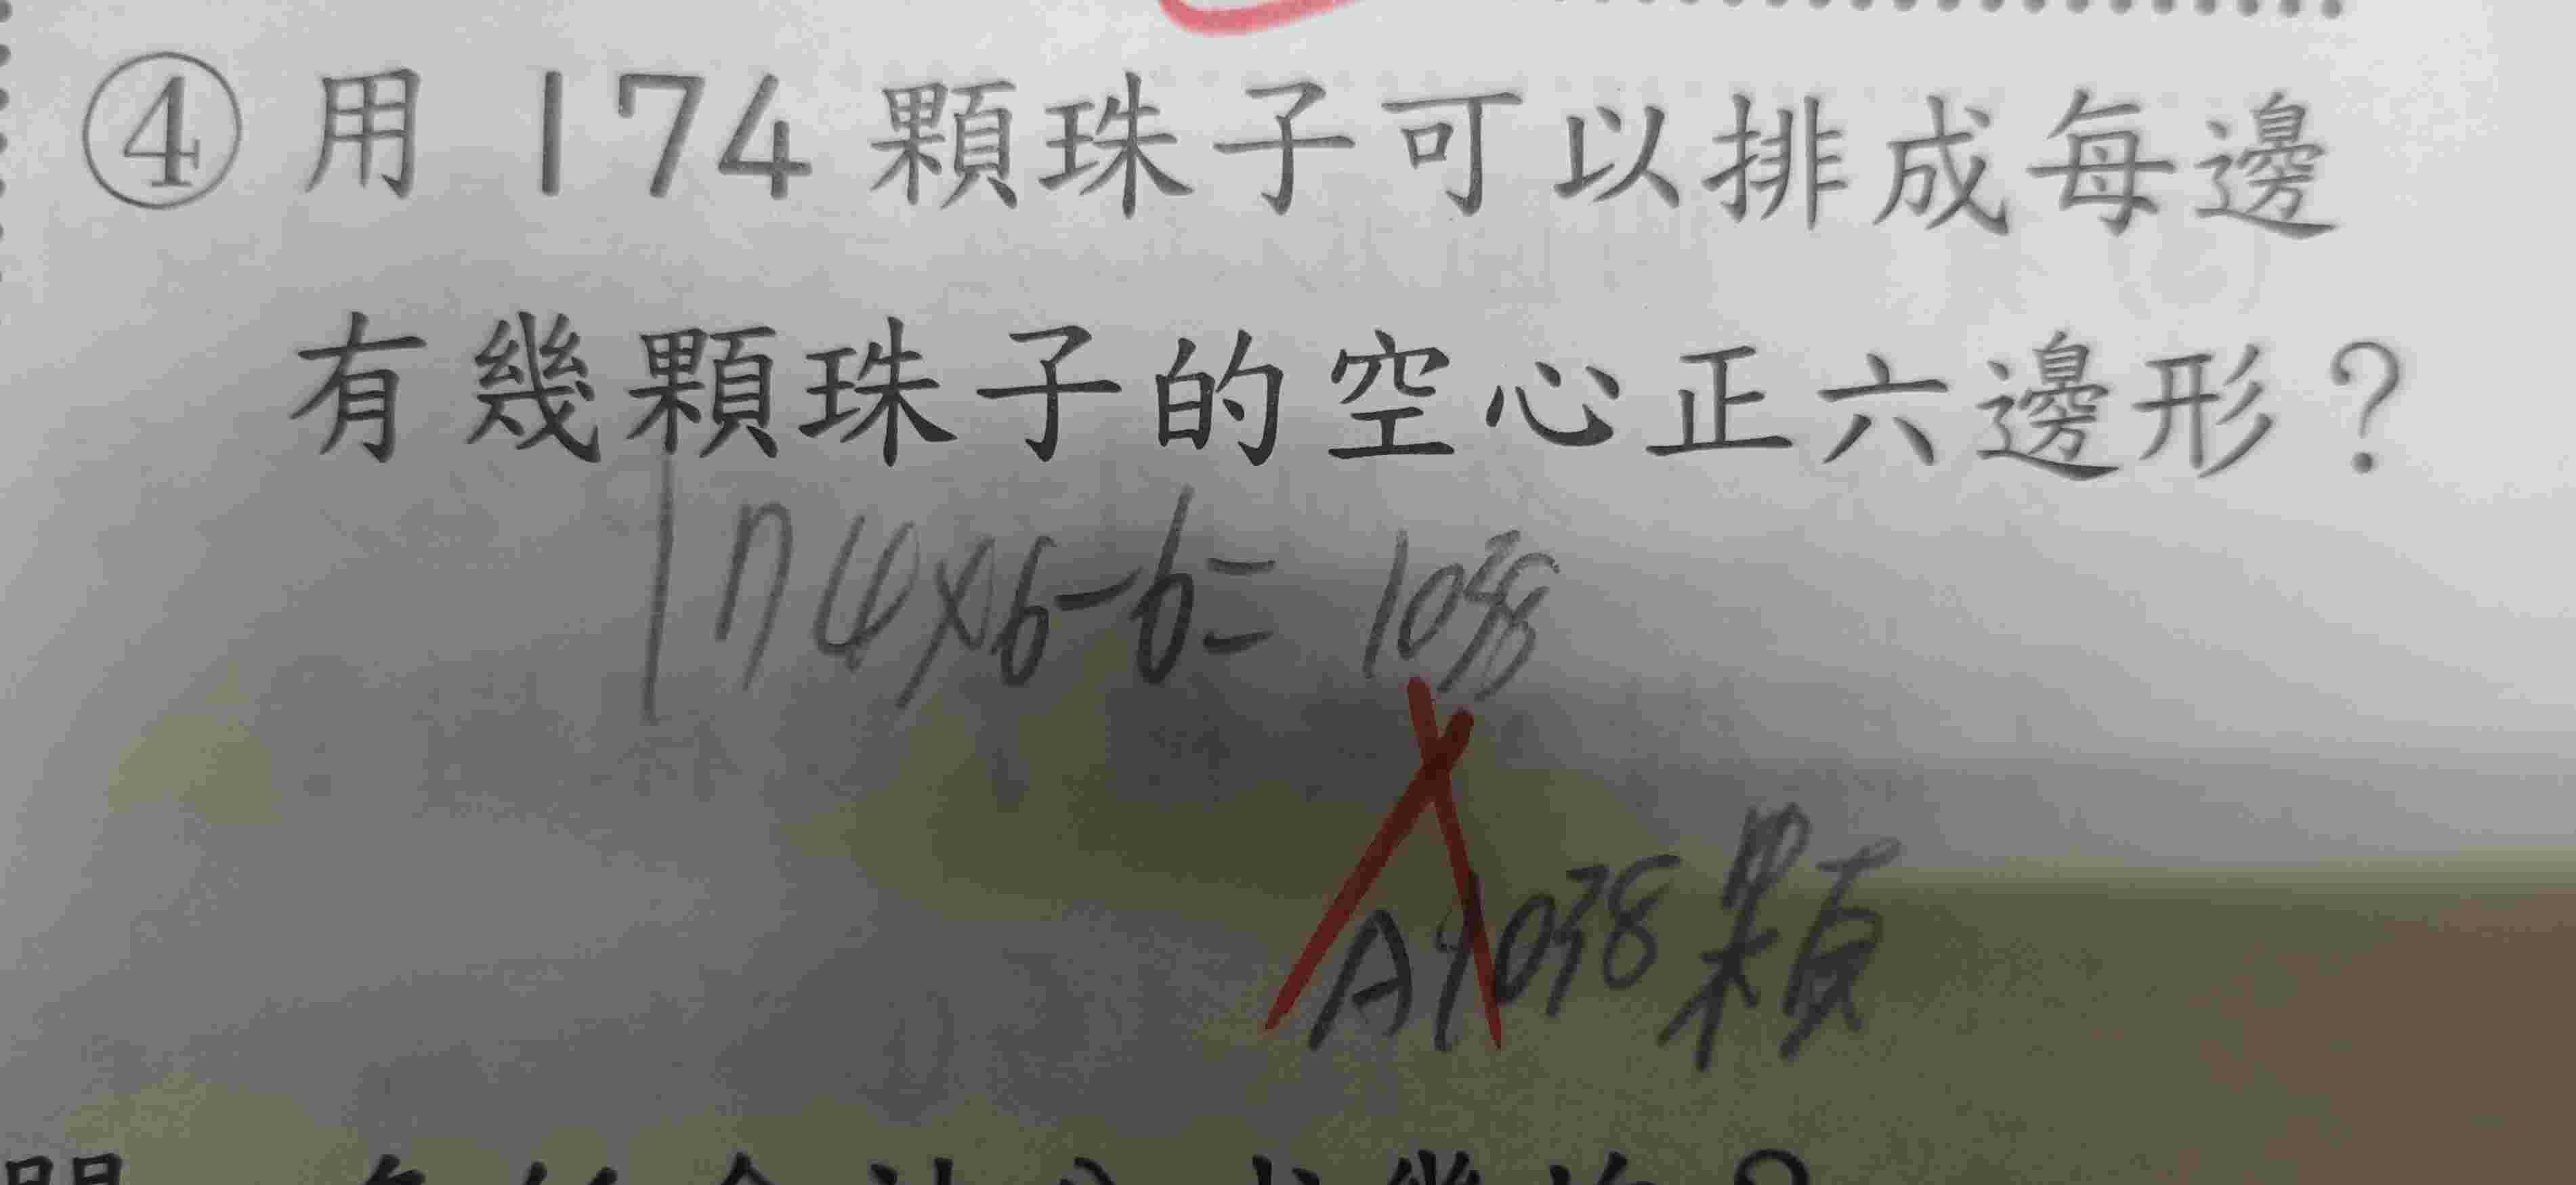 ④ 用 174 顆珠子可以排成每邊
有幾顆珠子的空心正六邊形？
174×6-6= 1038
A1038顆